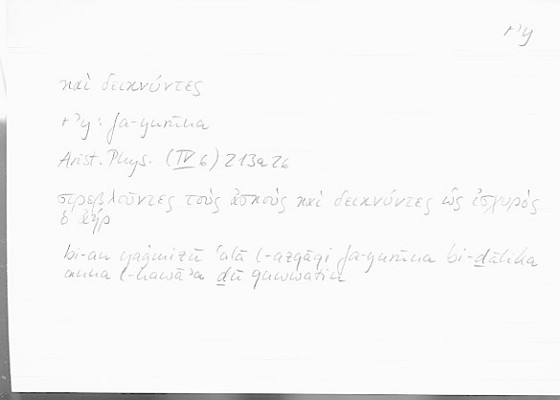 rʾy
καὶ δεικνύντες
rʾy : fa-yurūka
Arist. Phys. (IV 6) 213a26
στρεβλοῦντες τοὺς ἀσκοὺς καὶ δεικνύντες ὡς ἰσχυρὸς
ὁ ἀήρ
bi-an yaġmizū ʿalā l-azqāqi fa-yurūka bi-ḏālika
anna l-hawāʾa ḏū quwwatin